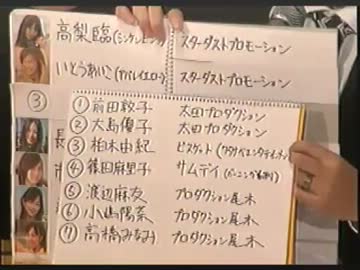 高梨臨(シンケンピンク) スターダストプロモーション
いとうあいこ(アバレイエロー) スターダストプロモーション
③
① 前田敦子 太田プロダクション
② 大島優子 太田プロダクション
③ 柏木由紀
④ 篠田麻里子 サムデイ
⑤ 渡辺麻友 プロダクション尾木
⑥ 小山陽菜 プロダクション尾木
⑦ 高橋みなみ プロダクション尾木